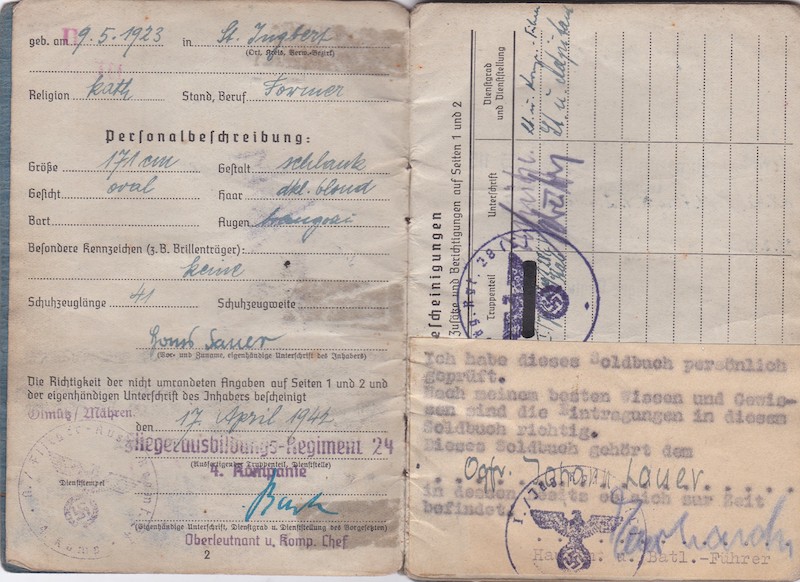 geb. am 9.5.1923 in St. Ingbert
(Ort, Kreis, Verw.-Bezirk)
Religion kath Stand, Beruf Former
Personalbeſchreibung:
Größe 171 cm Geſtalt schlank
Geſicht oval Haar dkl. blond
Bart Augen
Beſondere Kennzeichen (z. B. Brillenträger):
keine
Schuhzeuglänge 41 Schuhzeugweite
Hans Lauer
(Vor- und Zuname, eigenhändige Unterſchrift des Inhabers)
Die Richtigkeit der nicht umrandeten Angaben auf Seiten 1 und 2 und
der eigenhändigen Unterſchrift des Inhabers beſcheinigt
Olmütz/Mähren,
den 17. April 1942
Fliegerausbildungs-Regiment 24
(Ausfertigender Truppenteil, Dienſtſtelle)
4. Kompanie
Dienſtſtempel
(Eigenhändige Unterſchrift, Dienſtgrad u. Dienſtſtellung des Vorgeſetzten)
Oberleutnant u. Komp. Chef
2
eſcheinigungen
Zuſätze und Berichtigungen auf Seiten 1 und 2
Truppenteil
Unterſchrift
Dienſtgrad und Dienſtſtellung
Ich habe dieses Soldbuch persönlich
geprüft.
Nach meinem besten Wissen und Gewis-
sen sind die Eintragungen in diesem
Soldbuch richtig.
Dieses Soldbuch gehört dem
Ogfr. Johann Lauer
in dessen Besitz es sich zur Zeit
befindet.
u. Batl.-Führer